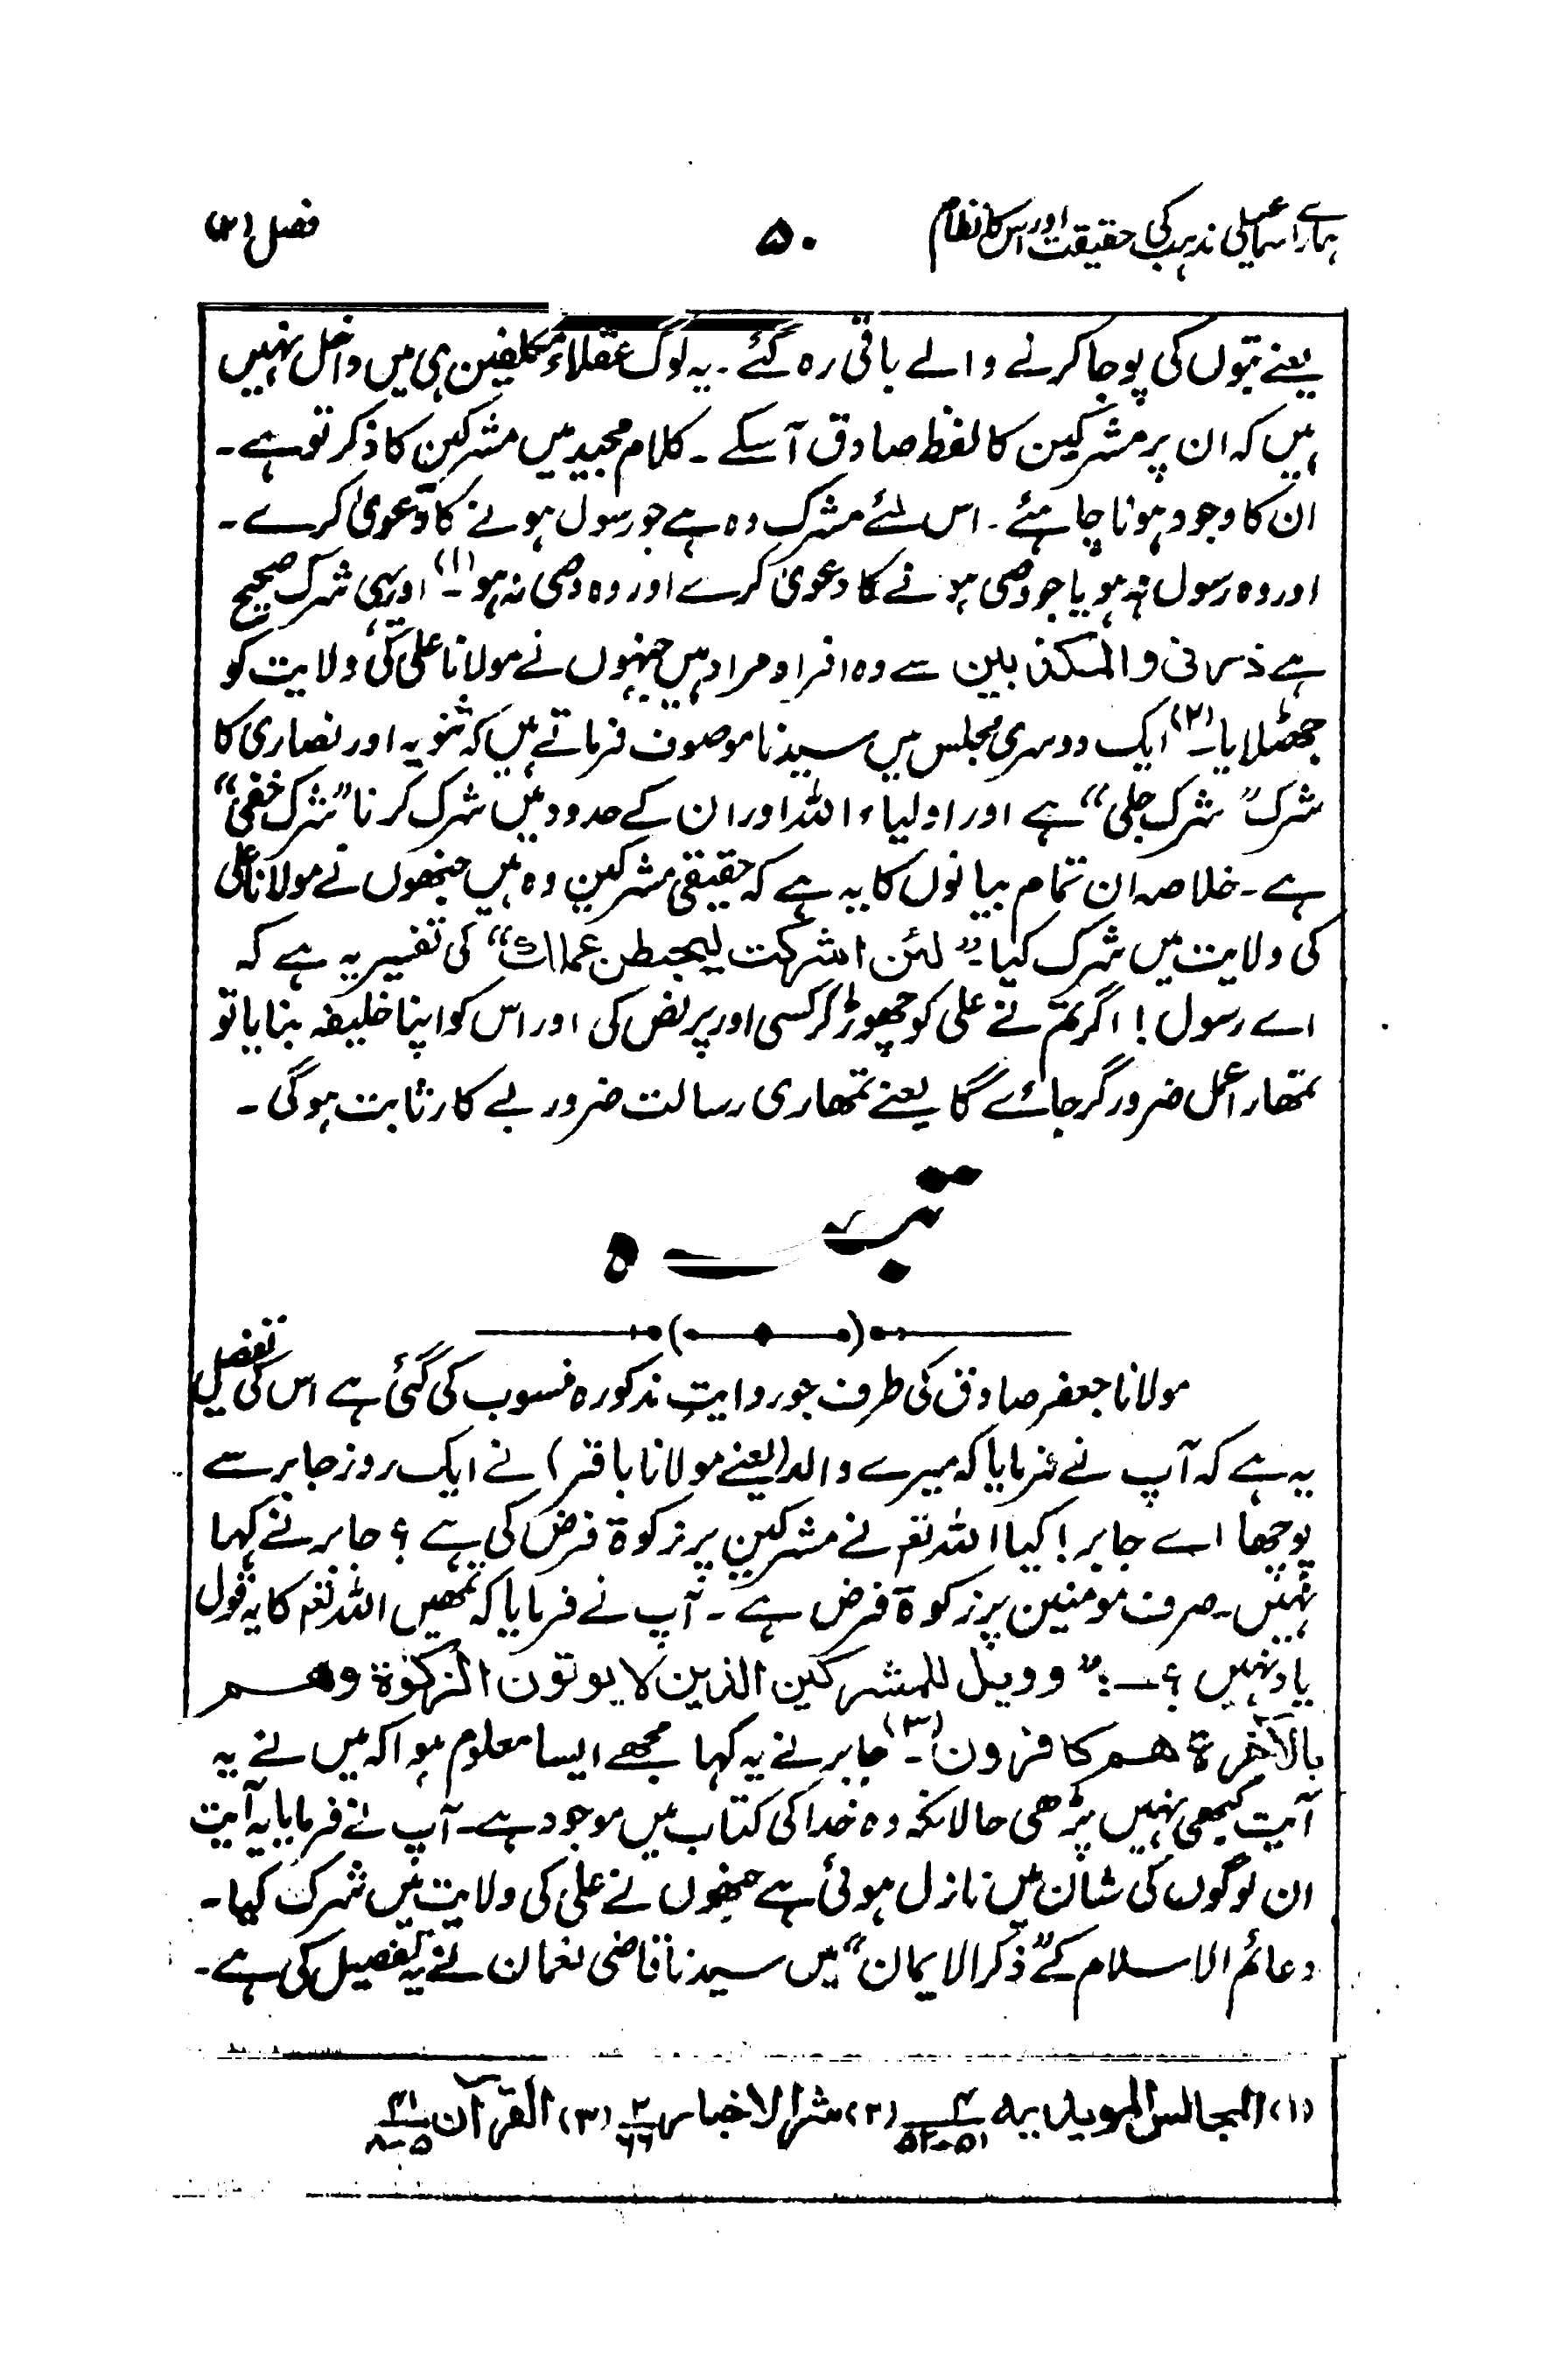 ہمارے اسماعیلی مذہب کی حقیقت اور اس کا نظام ۵۰ فصل (۲)
یعنے بتوں کی پوجا کرنے والے باقی رہ گئے ۔ یہ لوگ عقلاء مکلفین ہی میں داخل نہیں
ہیں کہ ان پر مشرکین کا لفظ صادق آسکے ۔ کلام مجید میں مشرکین کا ذکر تو ہے ۔
ان کا وجود ہونا چاہئے ۔ اس لئے مشرک وہ ہے جو رسول ہونے کا دعویٰ کرے ۔
اور وہ رسول نہ ہو یا جو وصی ہونے کا دعویٰ کرے اور وہ وصی نہ ہو ۔(۱) اور یہی شرک صحیح
ہے ذرنی والمکذبین سے وہ افراد مراد ہیں جنہوں نے مولانا علی کی ولایت کو
جھٹلایا ۔(۲) ایک دوسری مجلس میں سیدنا موصوف فرماتے ہیں کہ ثنویہ اور نصاریٰ کا
شرک ”شرک جلی“ ہے اور اولیاء اللہ اور ان کے حدود میں شرک کرنا ”شرک خفی“
ہے ۔ خلاصہ ان تمام بیانوں کا یہ ہے کہ حقیقی مشرکین وہ ہیں جنھوں نے مولانا علی
کی ولایت میں شرک کیا ۔ ”لئن اشرکت لیحبطن عملک“ کی تفسیر یہ ہے کہ
اے رسول ! اگر تم نے علی کو چھوڑ کر کسی اور پر نص کی اور اس کو اپنا خلیفہ بنایا تو
تمھارا عمل ضرور گر جائے گا یعنے تمھاری رسالت ضرور بے کار ثابت ہوگی ۔
تبصرہ
مولانا جعفر صادق کی طرف جو روایتِ مذکورہ منسوب کی گئی ہے اس کی تفصیل
یہ ہے کہ آپ نے فرمایا کہ میرے والد (یعنے مولانا باقر) نے ایک روز جابر سے
پوچھا اے جابر ! کیا اللہ تعم نے مشرکین پر زکوۃ فرض کی ہے ؟ جابر نے کہا
نہیں ۔ صرف مومنین پر زکوۃ فرض ہے ۔ آپ نے فرمایا کہ تمھیں اللہ تعم کا یہ قول
یاد نہیں ؟ ـ : ”وویل للمشرکین الذین لا یوتون الزکوٰۃ وھم
بالآخرۃ ھم کافرون ۔(۳) جابر نے یہ کہا مجھے ایسا معلوم ہوا کہ میں نے یہ
آیت کبھی نہیں پڑھی حالانکہ وہ خدا کی کتاب میں موجود ہے ۔ آپ نے فرمایا یہ آیت
ان لوگوں کی شان میں نازل ہوئی ہے جنھوں نے علی کی ولایت میں شرک کیا ۔
دعائم الاسلام کے ”ذکر الایمان“ میں سیدنا قاضی نعمان نے یہ تفصیل کی ہے ۔
(۱) المجالس المویدیہ ۴/۵۱-۵۲ (۲) شرح الاخبار ۲/۶۶ (۳) القرآن ۴۱/۵-۸